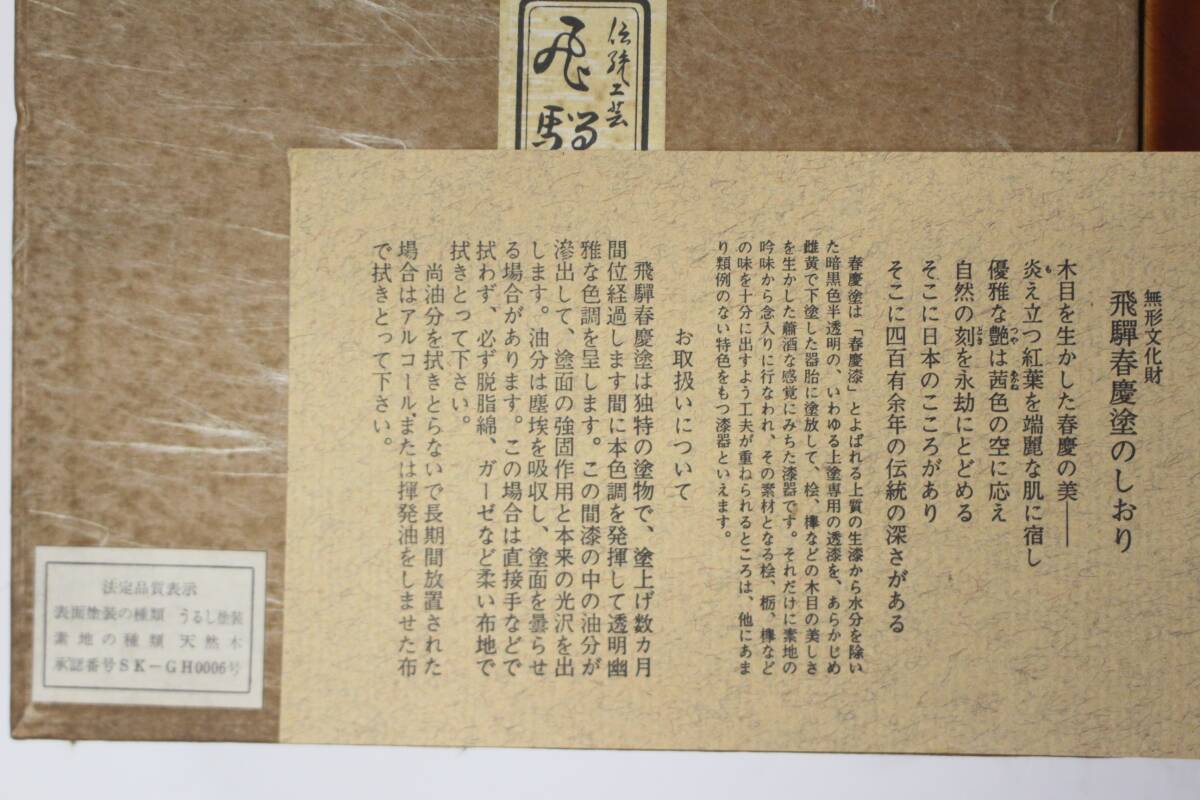 伝統工芸
飛騨
無形文化財
飛驒春慶塗のしおり
木目を生かした春慶の美――
炎え立つ紅葉を端麗な肌に宿し
優雅な艶は茜色の空に応え
自然の刻を永劫にとどめる
そこに日本のこころがあり
そこに四百有余年の伝統の深さがある
春慶塗は「春慶漆」とよばれる上質の生漆から水分を除い
た暗黒色半透明の、いわゆる上塗専用の透漆を、あらかじめ
雌黄で下塗した器胎に塗放して、桧、欅などの木目の美しさ
を生かした蕭洒な感覚にみちた漆器です。それだけに素地の
吟味から念入りに行なわれ、その素材となる桧、栃、欅など
の味を十分に出すよう工夫が重ねられるところは、他にあま
り類例のない特色をもつ漆器といえます。
お取扱いについて
飛驒春慶塗は独特の塗物で、塗上げ数カ月
間位経過します間に本色調を発揮して透明幽
雅な色調を呈します。この間漆の中の油分が
滲出して、塗面の強固作用と本来の光沢を出
します。油分は塵埃を吸収し、塗面を曇らせ
る場合があります。この場合は直接手などで
拭わず、必ず脱脂綿、ガーゼなど柔い布地で
拭きとって下さい。
尚油分を拭きとらないで長期間放置された
場合はアルコール、または揮発油をしませた布
で拭きとって下さい。
法定品質表示
表面塗装の種類 うるし塗装
素地の種類 天然木
承認番号SK-GH0006号